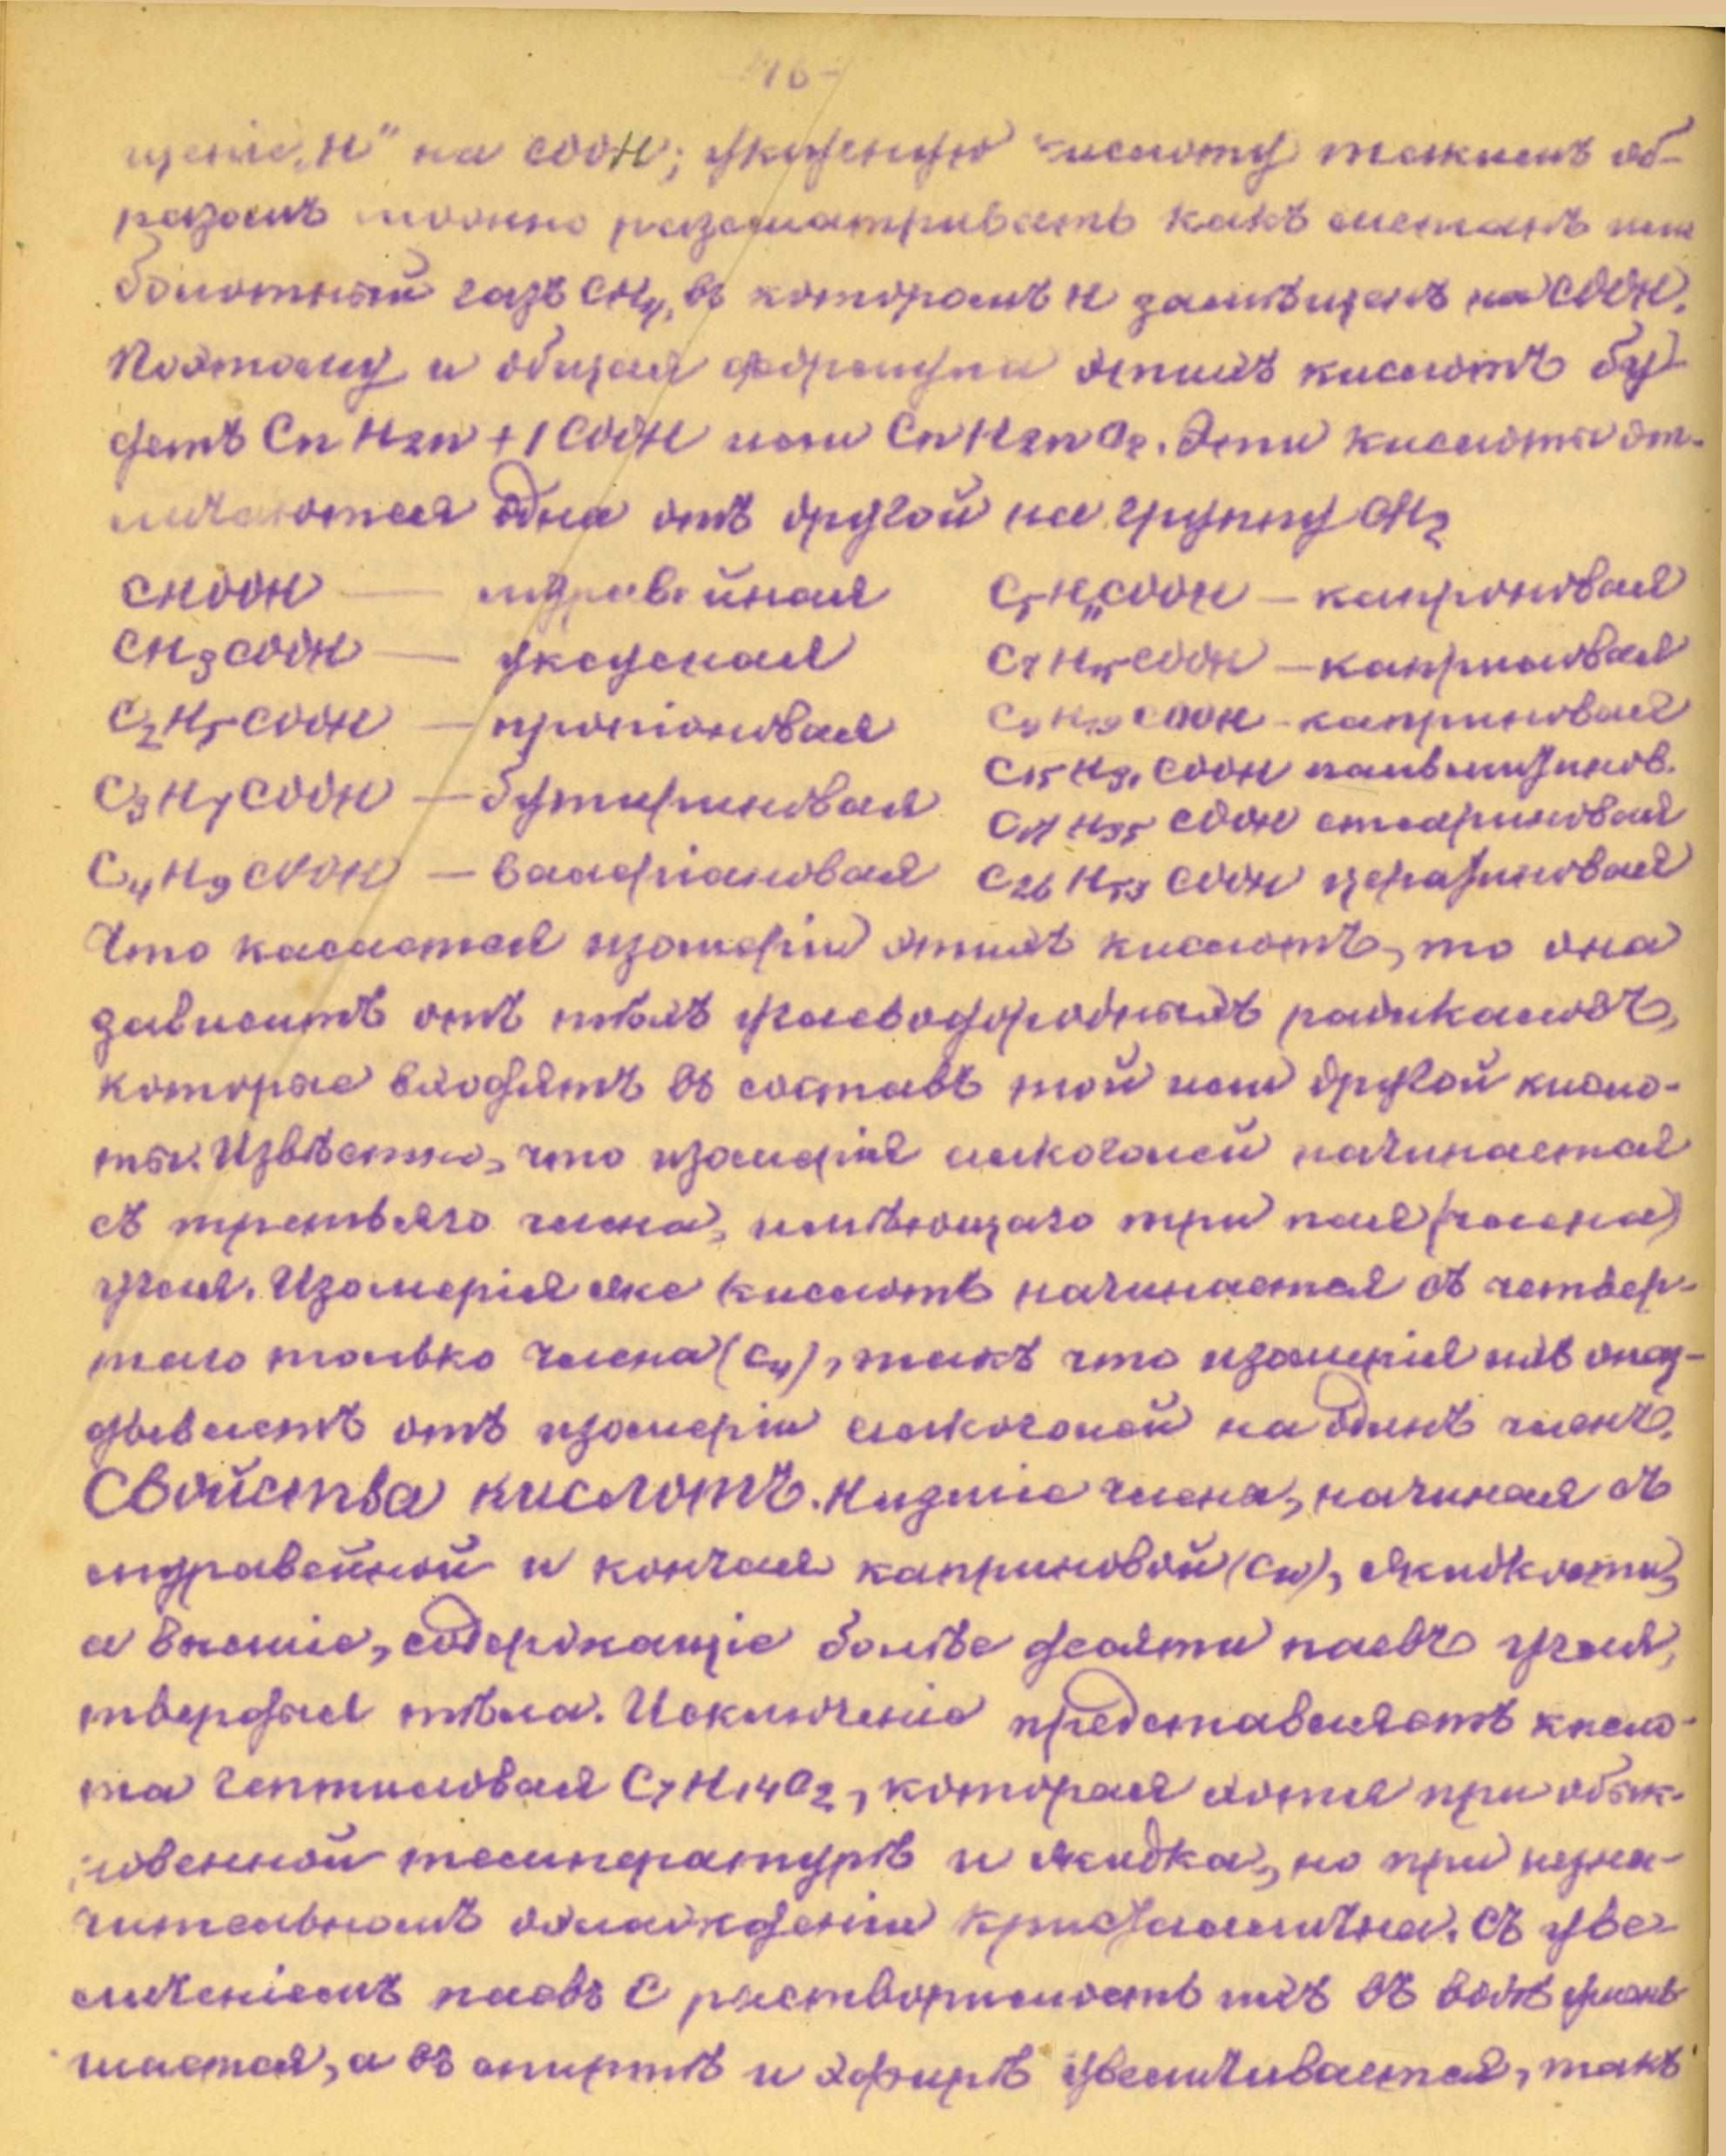 16-
щеніе „Н" на COOH; уксусную кислоту такимъ об-
разомъ можно разсматривать какъ метанъ или
болотный газъ CH4, въ которомъ H замѣщенъ на COOH.
Поэтому и общая формула этихъ кислотъ бу-
детъ CnH2n+1COOH или CnH2nO2. Эти кислоты от-
личаются одна отъ другой на группу CH2
CHOOH — муравьиная C5H11COOH — капроновая
CH3COOH — уксусная C7H15COOH — каприловая
C2H5COOH — пропіоновая C9H19COOH - каприновая
C3H7COOH — бутириновая C15H31COOH пальмитинов.
C4H9COOH — валеріановая C17H35COOH стеариновая
C26H53COOH церотиновая
Что касается изомеріи этихъ кислотъ, то она
зависитъ отъ тѣхъ углеводородныхъ радикаловъ,
которые входятъ въ составъ той или другой кисло-
ты. Извѣстно, что изомерія алкоголей начинается
съ третьяго члена, имѣющаго три пая (члена)
угля. Изомерія же кислотъ начинается съ четвер-
таго только члена (C4), такъ что изомерія ихъ опаз-
дываетъ отъ изомеріи алкоголей на одинъ членъ.
Свойства кислотъ. Низшіе члены, начиная съ
муравейной и кончая каприновой (C10), жидкости,
а высшіе, содержащіе болѣе десяти паевъ угля,
твердыя тѣла. Исключеніе представляетъ кисло-
та гептиловая C7H14O2, которая хотя при обык-
новенной температурѣ и жидка, но при незна-
чительномъ охлажденіи кристаллична. Съ уве-
личеніемъ паевъ C растворимость ихъ въ водѣ умень-
шается, а въ спиртѣ и эфирѣ увеличивается, такъ